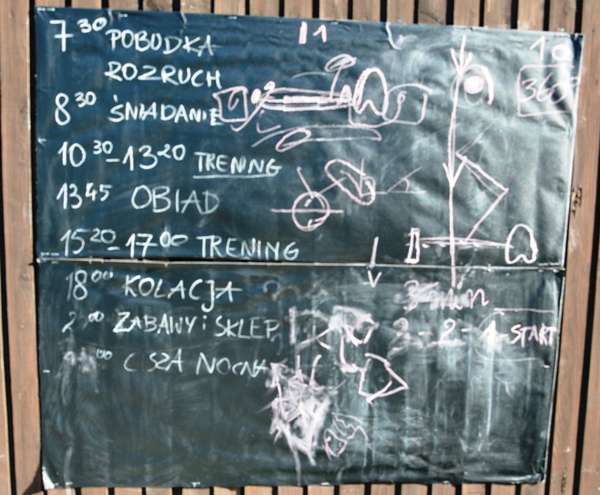 7 30 POBUDKA
ROZRUCH
8 30 ŚNIADANIE
10 30 - 13 20 TRENING
13 45 OBIAD
15 20 - 17 00 TRENING
18 00 KOLACJA
ZABAWY i SKLEP
NOCNA
360°
3 min
3 - 2 - 1 - START